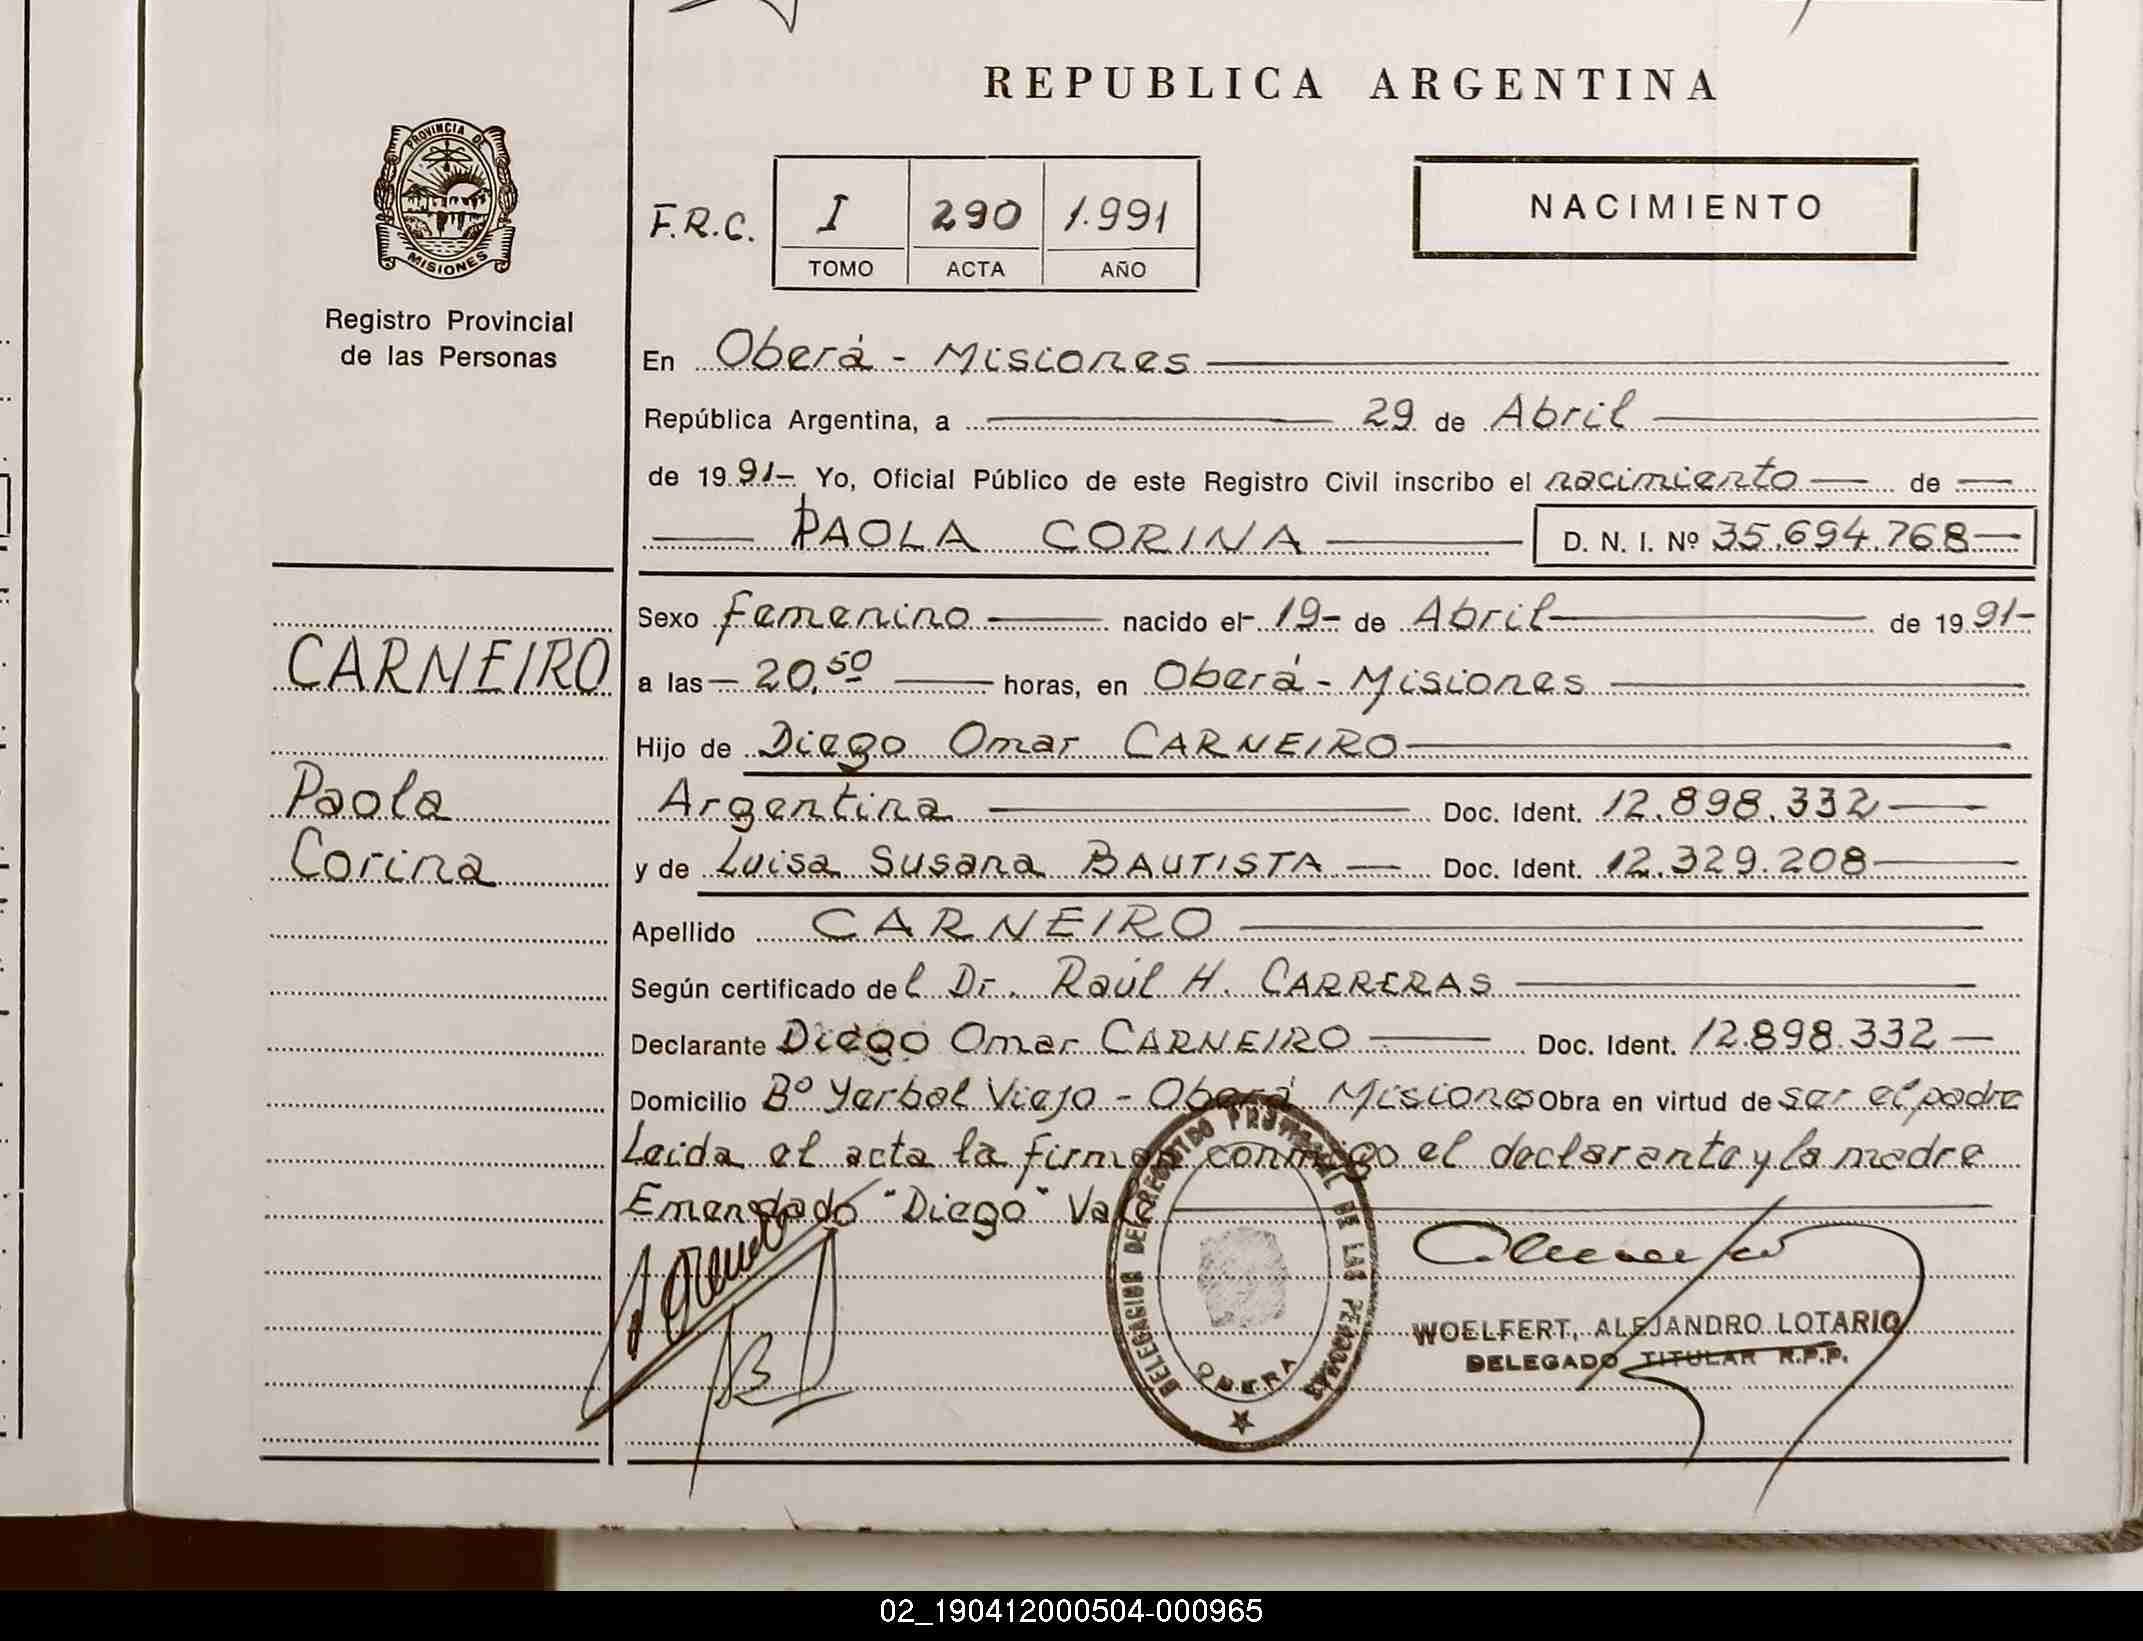 REPUBLICA ARGENTINA
PROVINCIA DE
MISIONES
Registro Provincial
de las Personas
F.R.C. I 290 1.991
TOMO ACTA AÑO
NACIMIENTO
En Oberá - Misiones
República Argentina, a 29 de Abril
de 1991- Yo, Oficial Público de este Registro Civil inscribo el nacimiento de
PAOLA CORINA D. N. I. Nº 35.694.768
CARNEIRO
Paola
Corina
Sexo Femenino nacido el 19 de Abril de 1991-
a las 20,50 horas, en Oberá - Misiones
Hijo de Diego Omar CARNEIRO
Argentina Doc. Ident. 12.898.332
y de Luisa Susana BAUTISTA Doc. Ident. 12.329.208
Apellido CARNEIRO
Según certificado del Dr. Raúl H. CARRERAS
Declarante Diego Omar CARNEIRO Doc. Ident. 12.898.332
Domicilio Bº Yerbal Viejo - Oberá Misiones Obra en virtud de ser el padre
Leida el acta la firman conmigo el declarante y la madre
Emendado "Diego" Vale
DELEGACION DEL REGISTRO PROVINCIAL DE LAS PERSONAS
OBERA
WOELFERT, ALEJANDRO LOTARIO
DELEGADO TITULAR R.P.P.
02_190412000504-000965